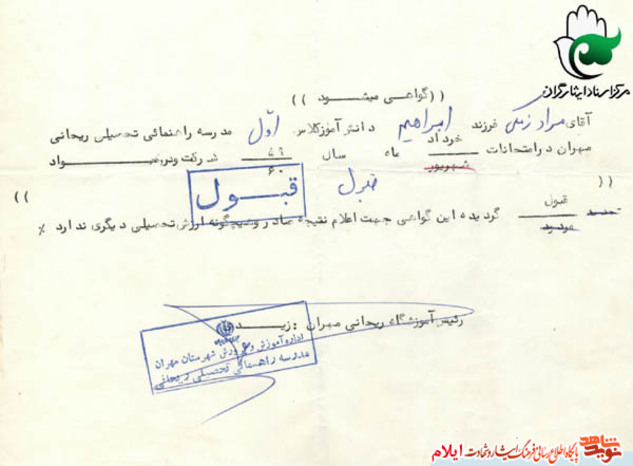 مرکز اسناد ایثارگران
((گواهی میشود))
آقای مراد فرزند ابراهیم دانش آموزکلاس اول مدرسه راهنمائی تحصیلی ریحانی
مهران درامتحانات خرداد شهریور ماه سال ۶۰ شرکت ودر
(( قبول قبول ))
قبول تجدید مردود گردیده این گواهی جهت اعلام نتیجه صادر وهیچگونه ارزش تحصیلی دیگری ندارد ٪
رئیس آموزشگاه ریحانی مهران :
اداره آموزش و پرورش شهرستان مهران
مدرسه راهنمائی تحصیلی ریحانی
نوید شاهد پایگاه اطلاع رسانی فرهنگ ایثار و شهادت ایلام